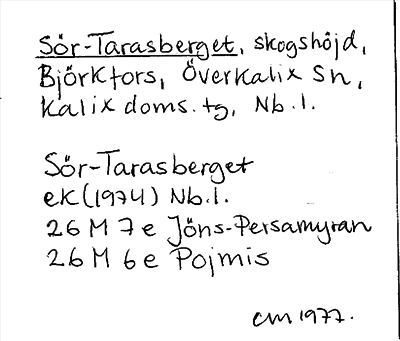 Sör-Tarasberget, skogshöjd,
Björkfors, Överkalix Sn,
Kalix doms. tg, Nb. l.
Sör-Tarasberget
ek (1974) Nb. l.
26 M 7 e Jöns-Persamyran
26 M 6 e Pojmis
CM 1977.